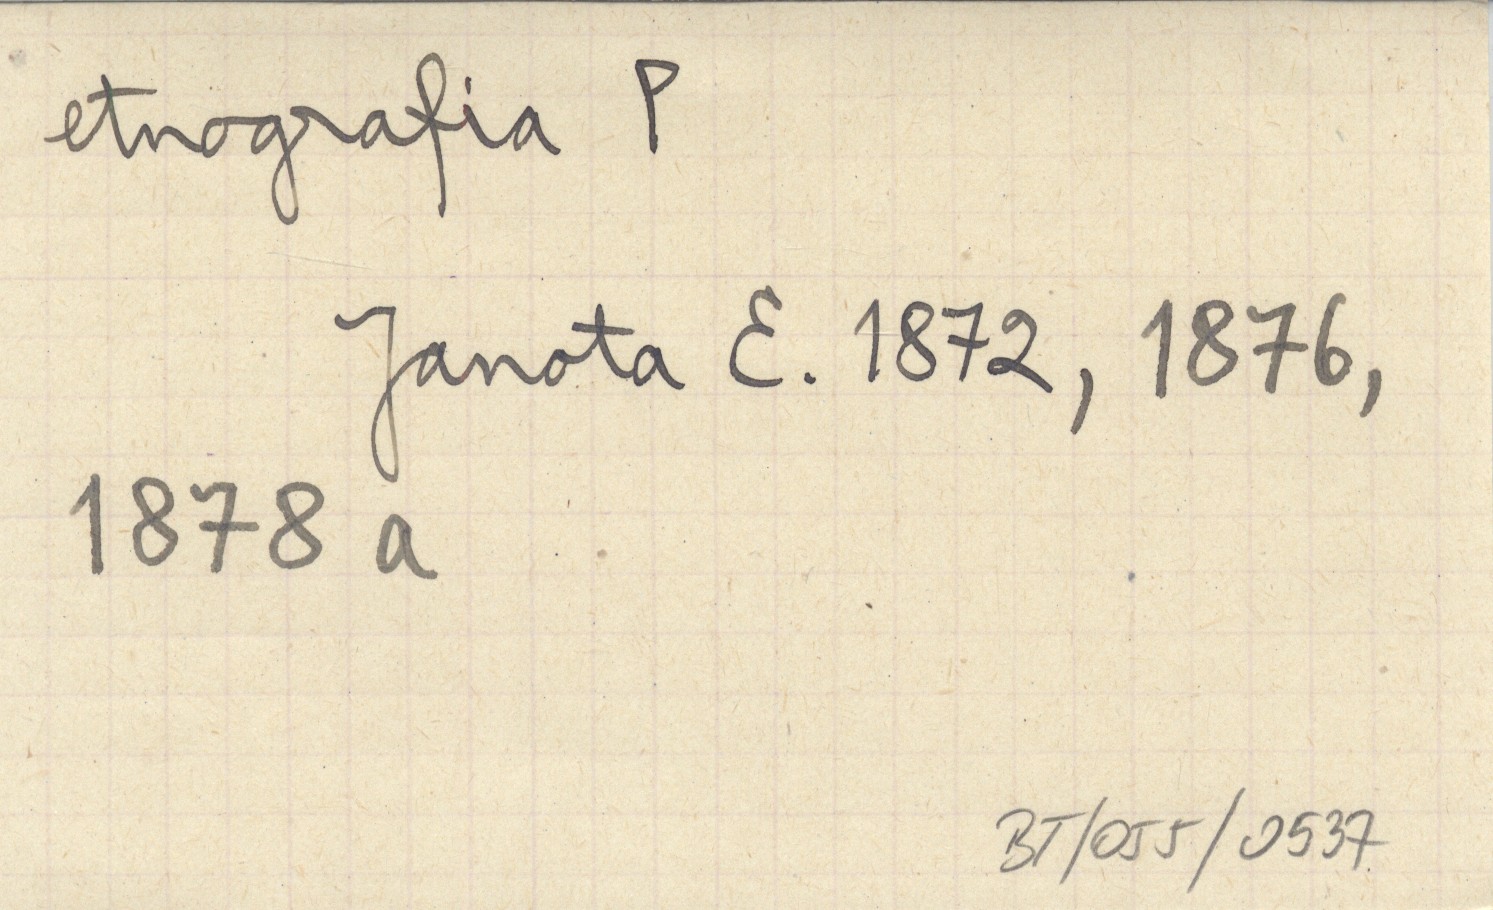 etnografia P
Janota E. 1872, 1876,
1878 a
BT/055/0537